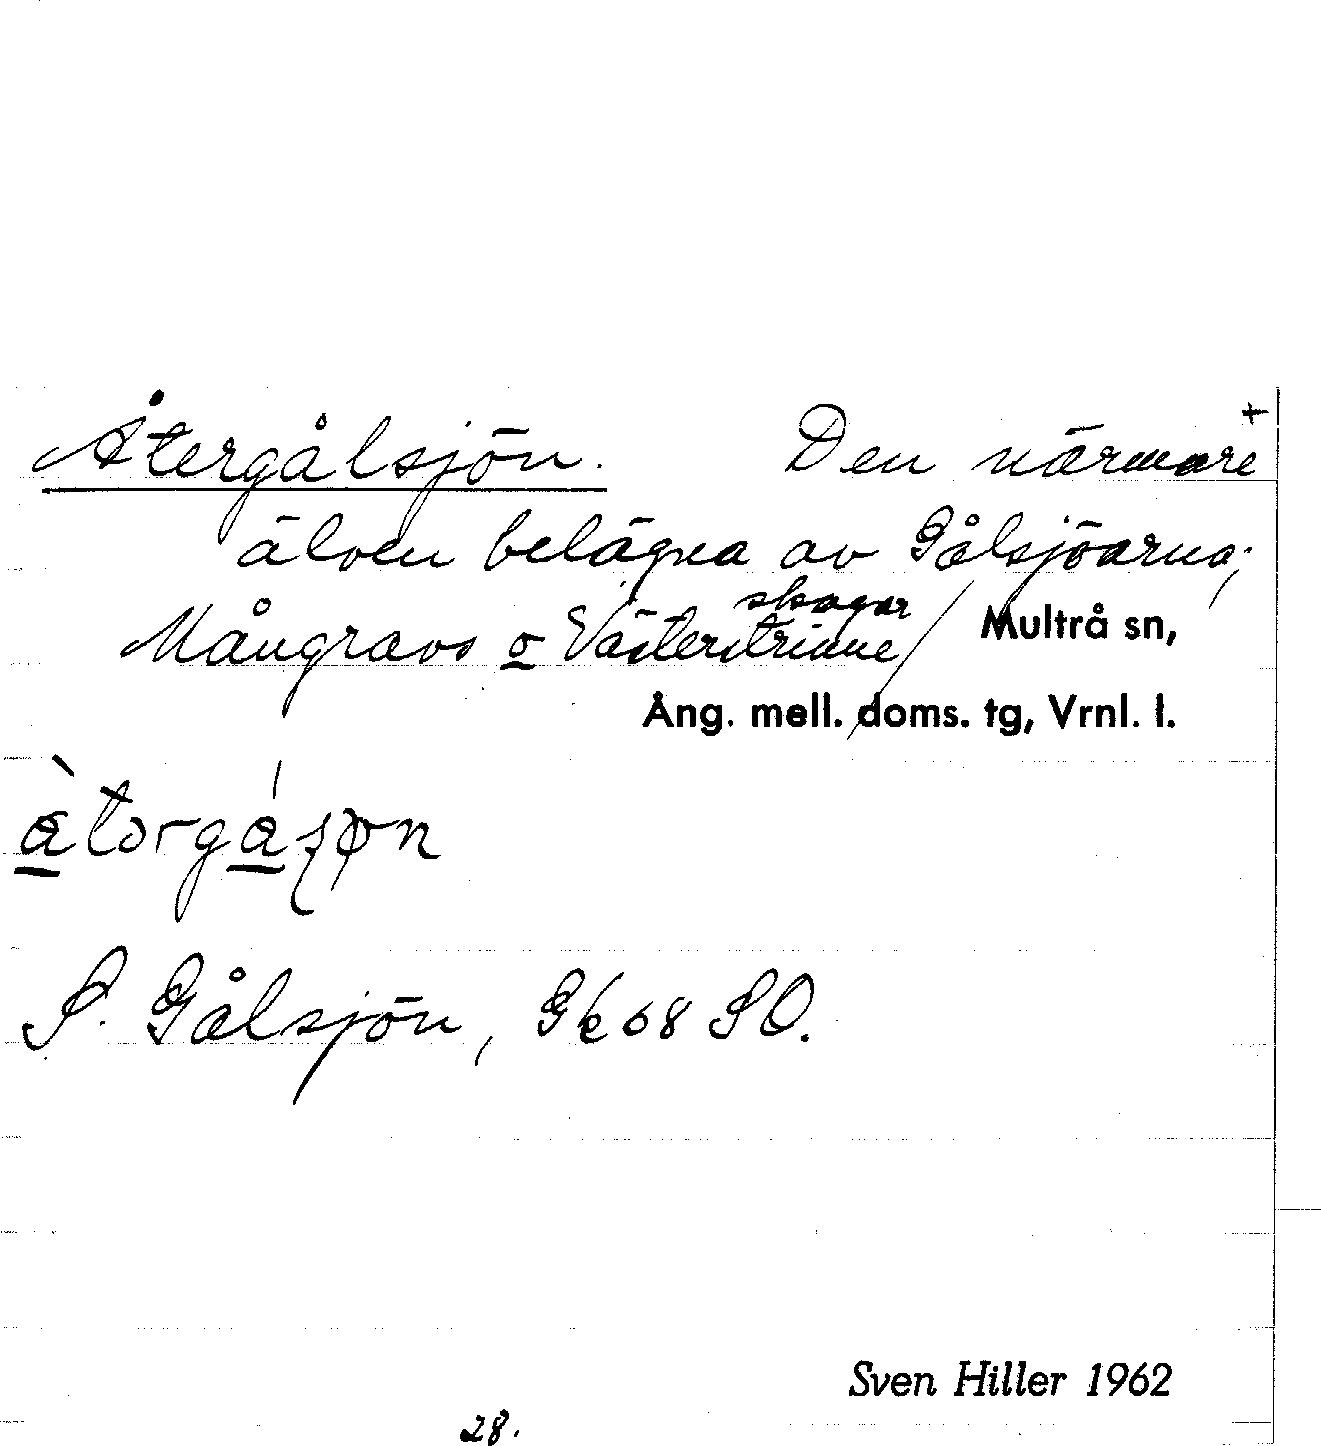 Återgålsjön. Den närmare +
älven belägna av Gålsjöarna;
skogar
Mångravs o Västerstrinne / Multrå sn,
Ång. mell. doms. tg, Vrnl. l.
S. Gålsjön, Gk 68 SO.
Sven Hiller 1962
28.